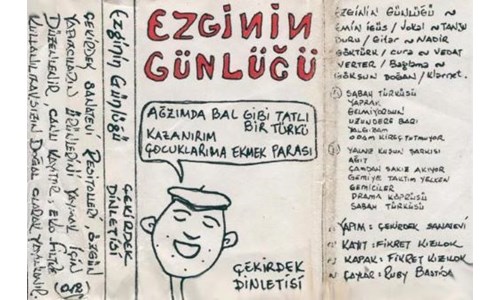 EZGİNİN
GÜNLÜĞÜ
AĞZIMDA BAL GİBİ TATLI
BİR TÜRKÜ
KAZANIRIM
ÇOCUKLARIMA EKMEK PARASI
ÇEKİRDEK
DİNLETİSİ
Ezginin Günlüğü
ÇEKİRDEK
DİNLETİSİ
ÇEKİRDEK SANATEVİ RESİTALLERİ, ÖZGÜN
YAPIMLARDAN ÜRÜNLERİNİ YAYMAK İÇİN
DÜZENLENİR, CANLI KAYITTIR, EKO FİLTRE
KULLANILMAKSIZIN DOĞAL OLARAK YAYINLANIR.
EZGİNİN GÜNLÜĞÜ ~
EMİN İGÜS / Vokal ~ TANJU
DURU / Gitar ~ NADİR
GÖKTÜRK / cura ~ VEDAT
VERTER / Bağlama ~
GÖKSUN DOĞAN / Klarnet.
SABAH TÜRKÜSÜ
YAPRAK
GELMİYORSUN
UZUNDERE BARI
ODAM KİREÇ TUTMUYOR
YALNIZ KUŞUN ŞARKISI
AĞIT
ÇAMDAN SAKIZ AKIYOR
GEMİYE TAKTIM YELKEN
GEMİCİLER
DRAMA KÖPRÜSÜ
SABAH TÜRKÜSÜ
YAPIM: ÇEKİRDEK SANATEVİ
KAYIT: FİKRET KIZILOK
KAPAK: FİKRET KIZILOK
ÇAYLAR: RUBY BASTİDA